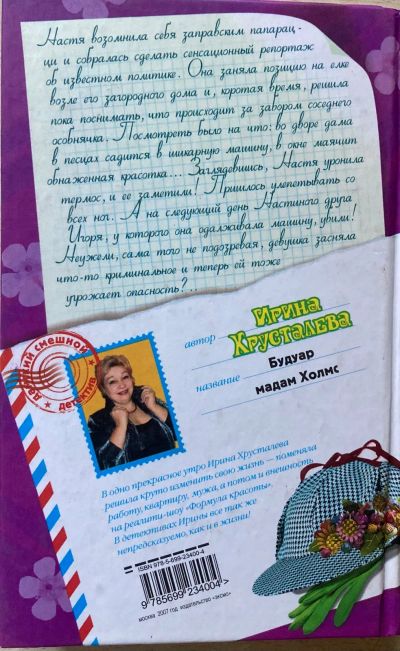 Настя возомнила себя заправским папарац-
ци и собралась сделать сенсационный репортаж
об известном политике. Она заняла позицию на елке
возле его загородного дома и, коротая время, решила
пока поснимать, что происходит за забором соседнего
особнячка. Посмотреть было на что: во дворе дама
в песцах садится в шикарную машину, в окне маячит
обнаженная красотка... Заглядевшись, Настя уронила
термос, и ее заметили! Пришлось улепетывать со
всех ног. А на следующий день Настиного друга
Игоря, у которого она одалживала машину, убили!
Неужели, сама того не подозревая, девушка засняла
что-то криминальное и теперь ей тоже
угрожает опасность?..
самый смешной
детектив
автор Ирина
Хрусталева
название Будуар
мадам Холмс
В одно прекрасное утро Ирина Хрусталева
решила круто изменить свою жизнь — поменяла
работу, квартиру, мужа, а потом и внешность
на реалити-шоу «Формула красоты».
В детективах Ирины все так же
непредсказуемо, как и в жизни!
ISBN 978-5-699-23400-4
9 785699 234004 >
москва 2007 год издательство «эксмо»